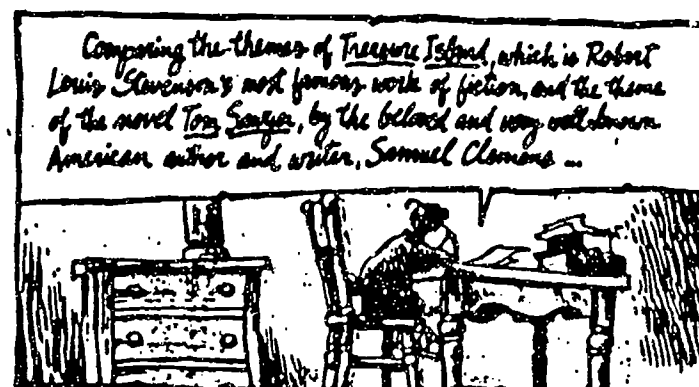 Comparing the themes of Treasure Island, which is Robert
Louis Stevenson's most famous work of fiction, and the theme
of the novel Tom Sawyer, by the beloved and very well-known
American author and writer, Samuel Clemens ...